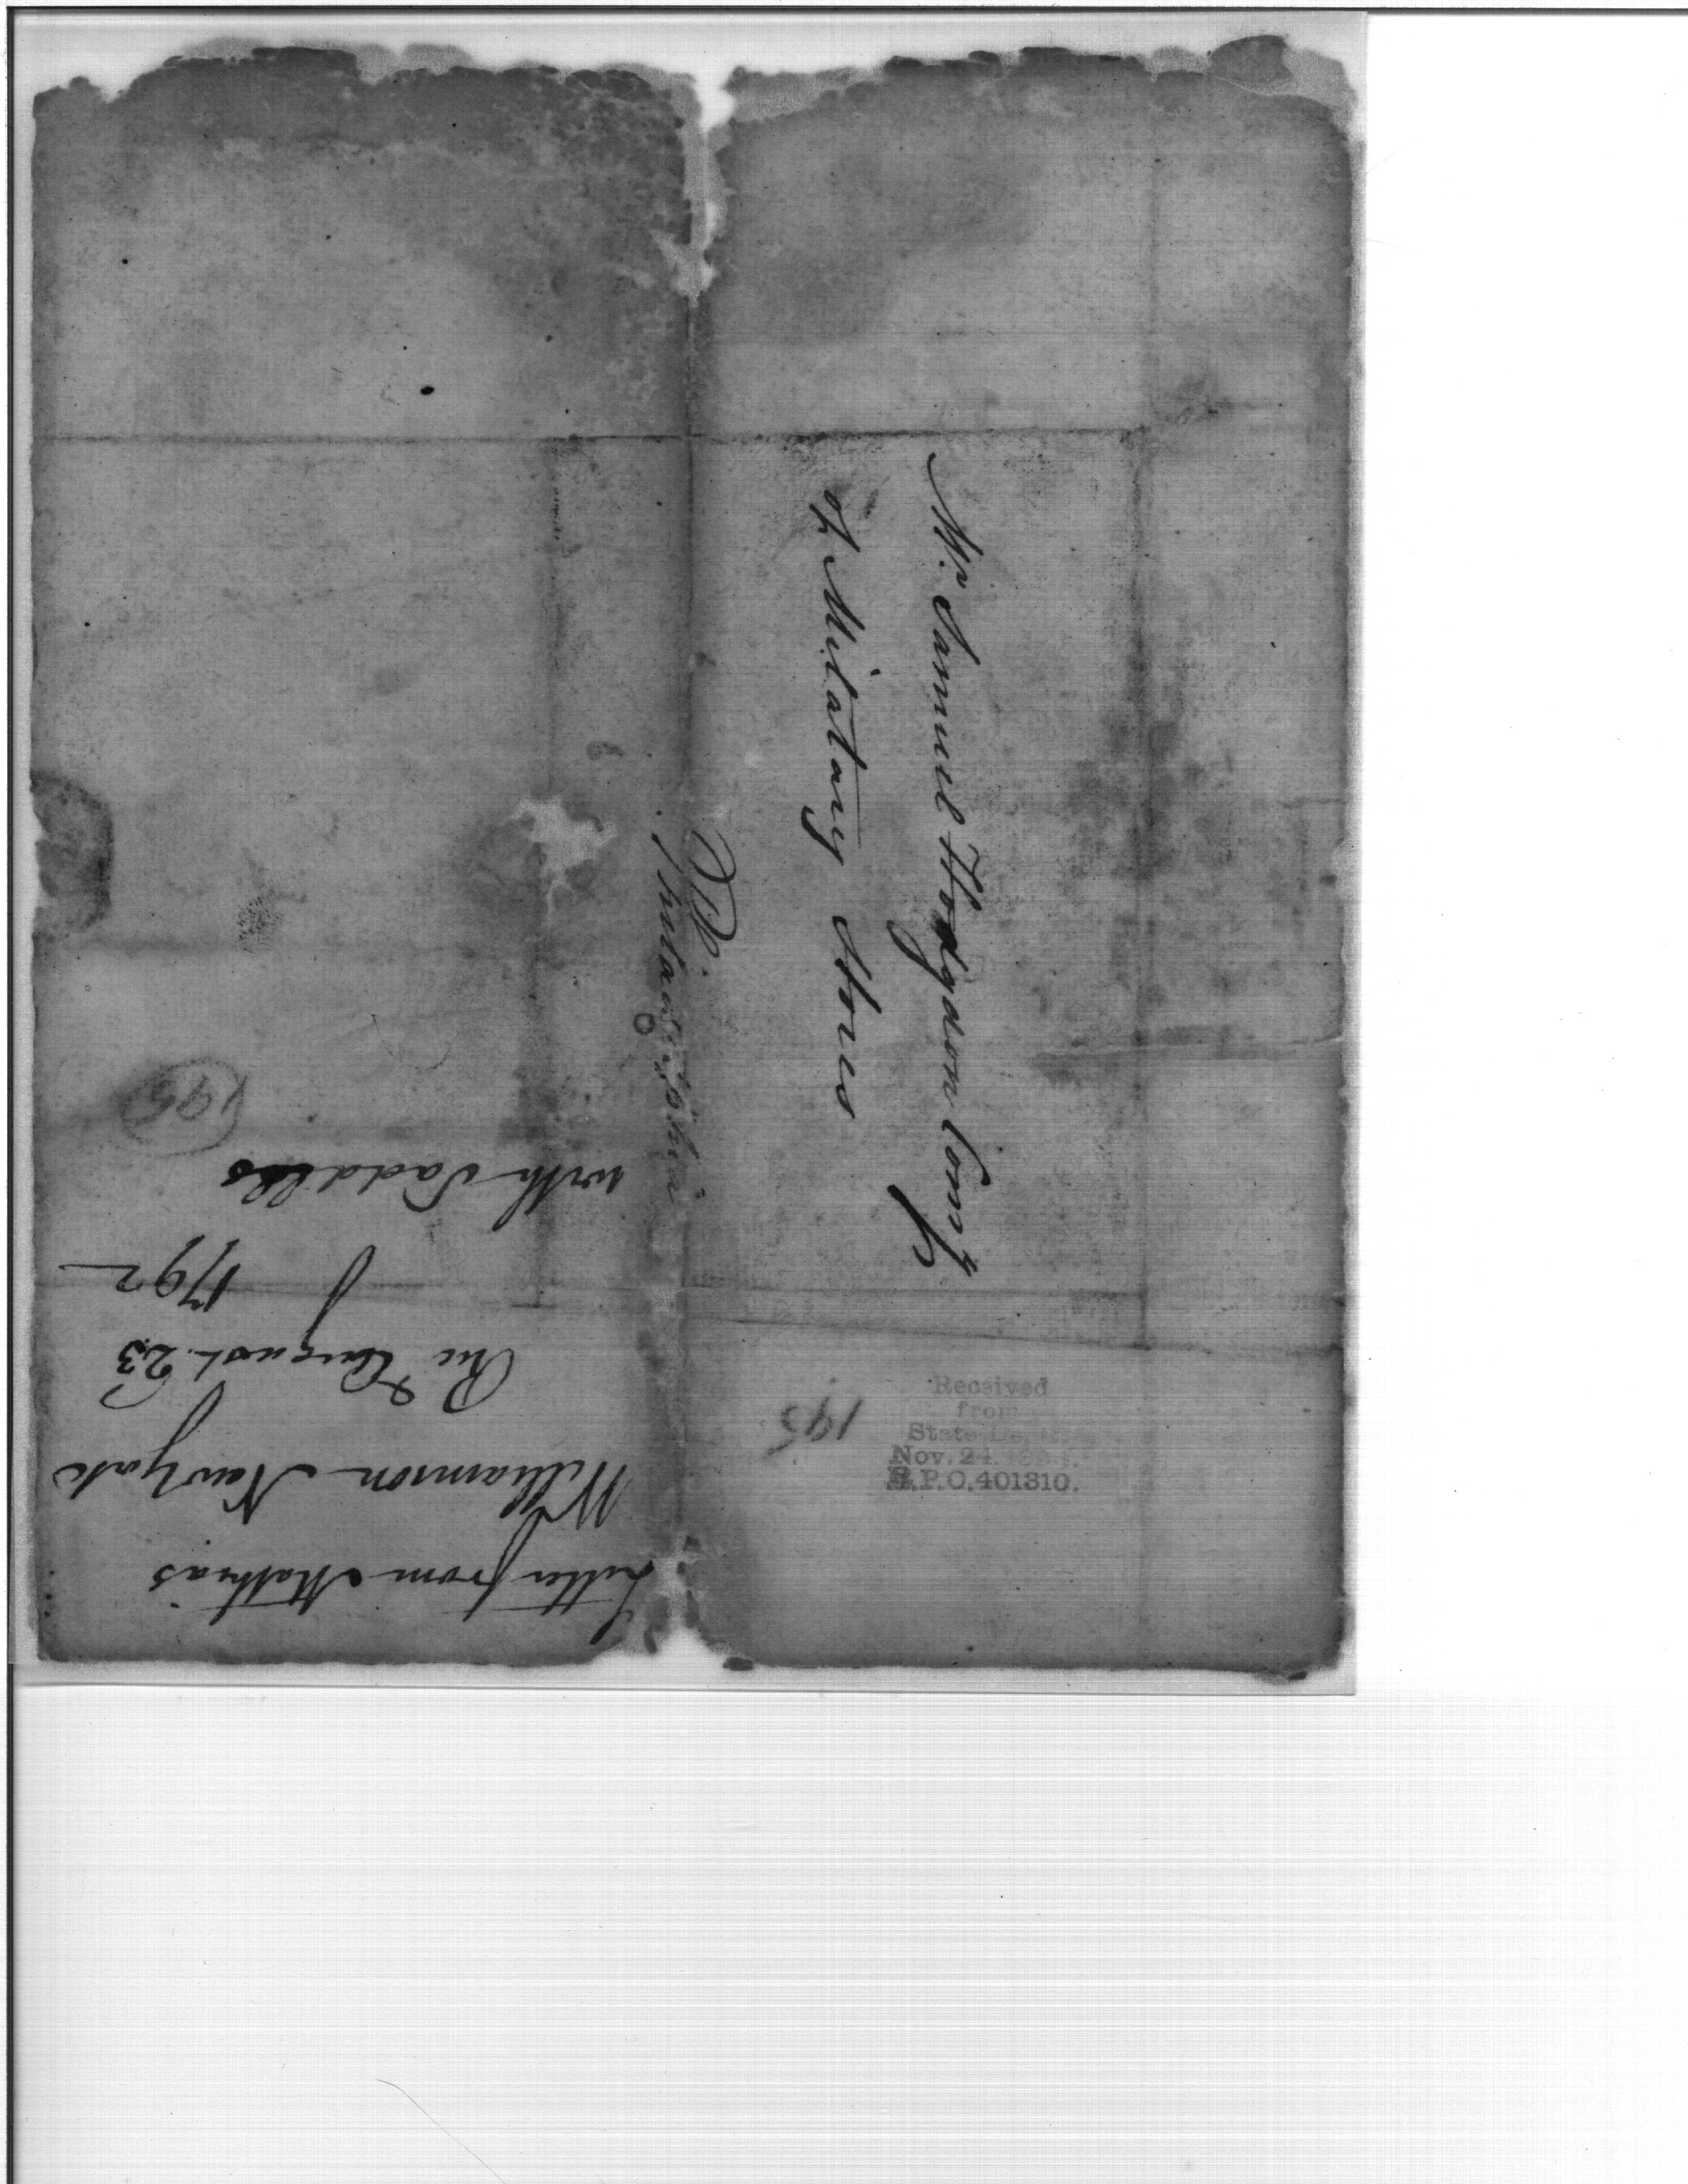 Mr. Samuel Hodgdon Comy
of Milatary Stores
Philadelphia
Letter from Mathias
Williamson New York
Rec'd August 23
1792
with Saddles
195
195
Received
from
State Dept.
Nov. 24
R.P.O. 401310.